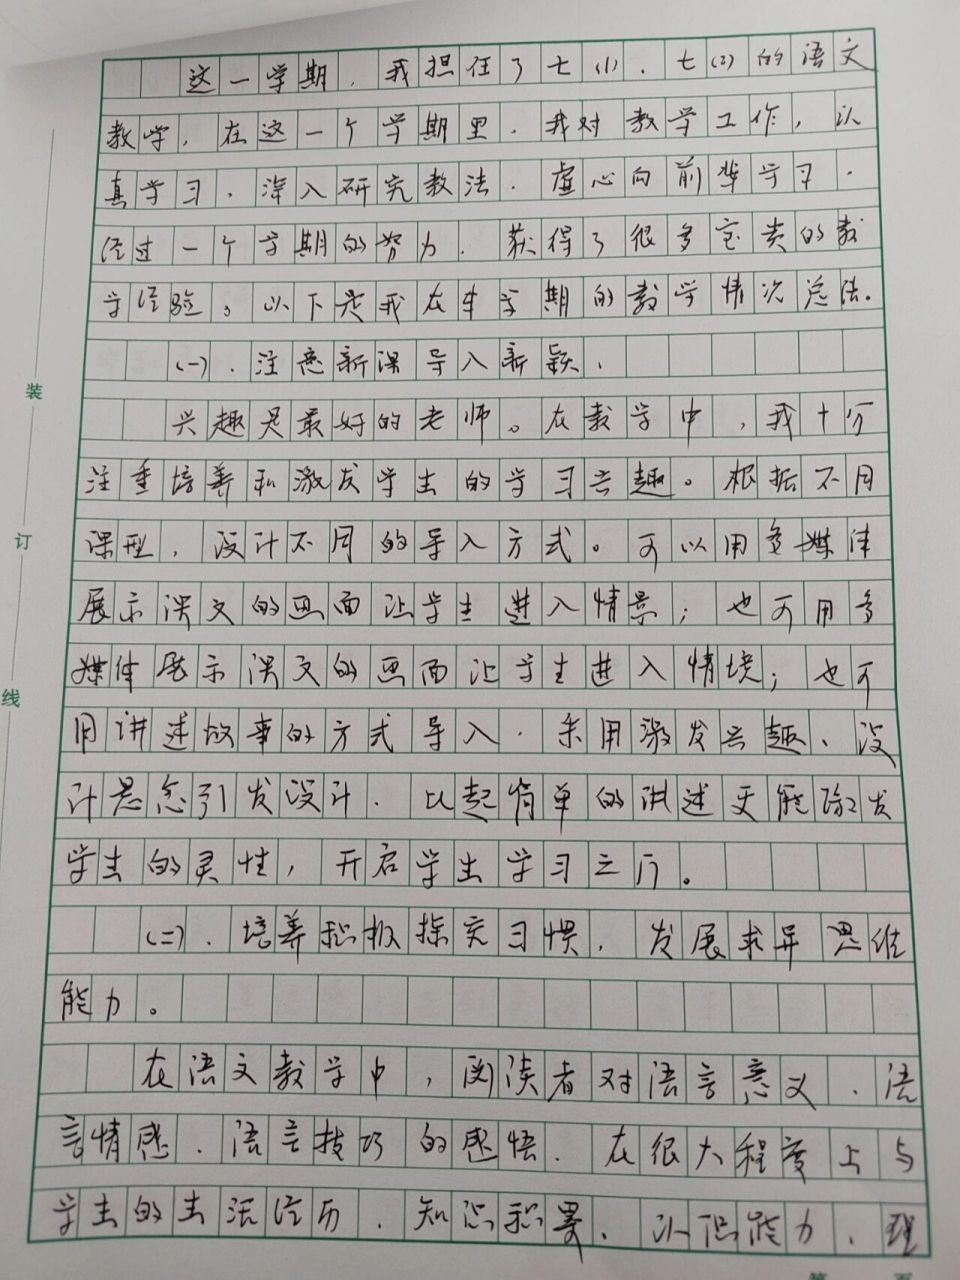 这一学期，我担任了七(1)、七(2)的语文
教学，在这一个学期里，我对教学工作，认
真学习，深入研究教法，虚心向前辈学习，
经过一个学期的努力，获得了很多宝贵的教
学经验。以下是我在本学期的教学情况总结.
(一)、注意新课导入新颖，
兴趣是最好的老师。在教学中，我十分
注重培养和激发学生的学习兴趣。根据不同
课型，设计不同的导入方式。可以用多媒体
展示课文的画面让学生进入情景；也可用多
媒体展示课文的画面让学生进入情境；也可
用讲述故事的方式导入，采用激发兴趣、设
计悬念引发设计，比起简单的讲述更能激发
学生的灵性，开启学生学习之门。
(二)、培养积极探究习惯，发展求异思维
能力。
在语文教学中，阅读者对语言意义、语
言情感、语言技巧的感悟，在很大程度上与
学生的生活经历、知识积累、认识能力、理
装
订
线